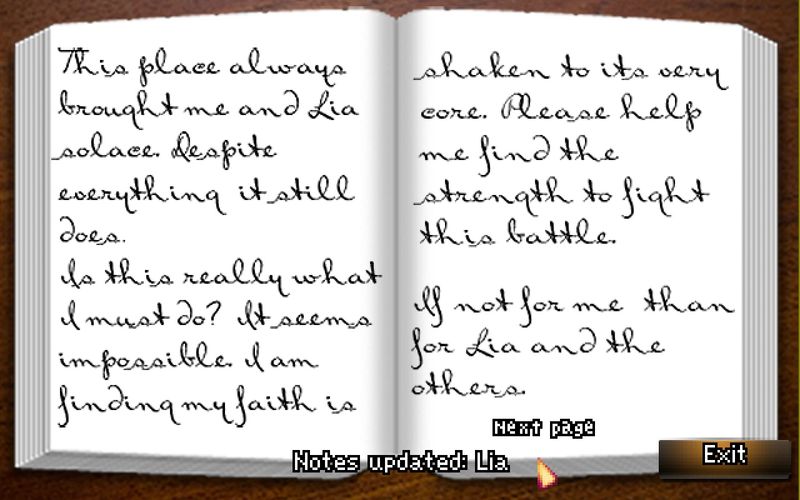 This place always
brought me and Lia
solace. Despite
everything it still
does.
Is this really what
I must do? It seems
impossible. I am
finding my faith is
shaken to its very
core. Please help
me find the
strength to fight
this battle.
If not for me than
for Lia and the
others.
Next page
Notes updated: Lia
Exit